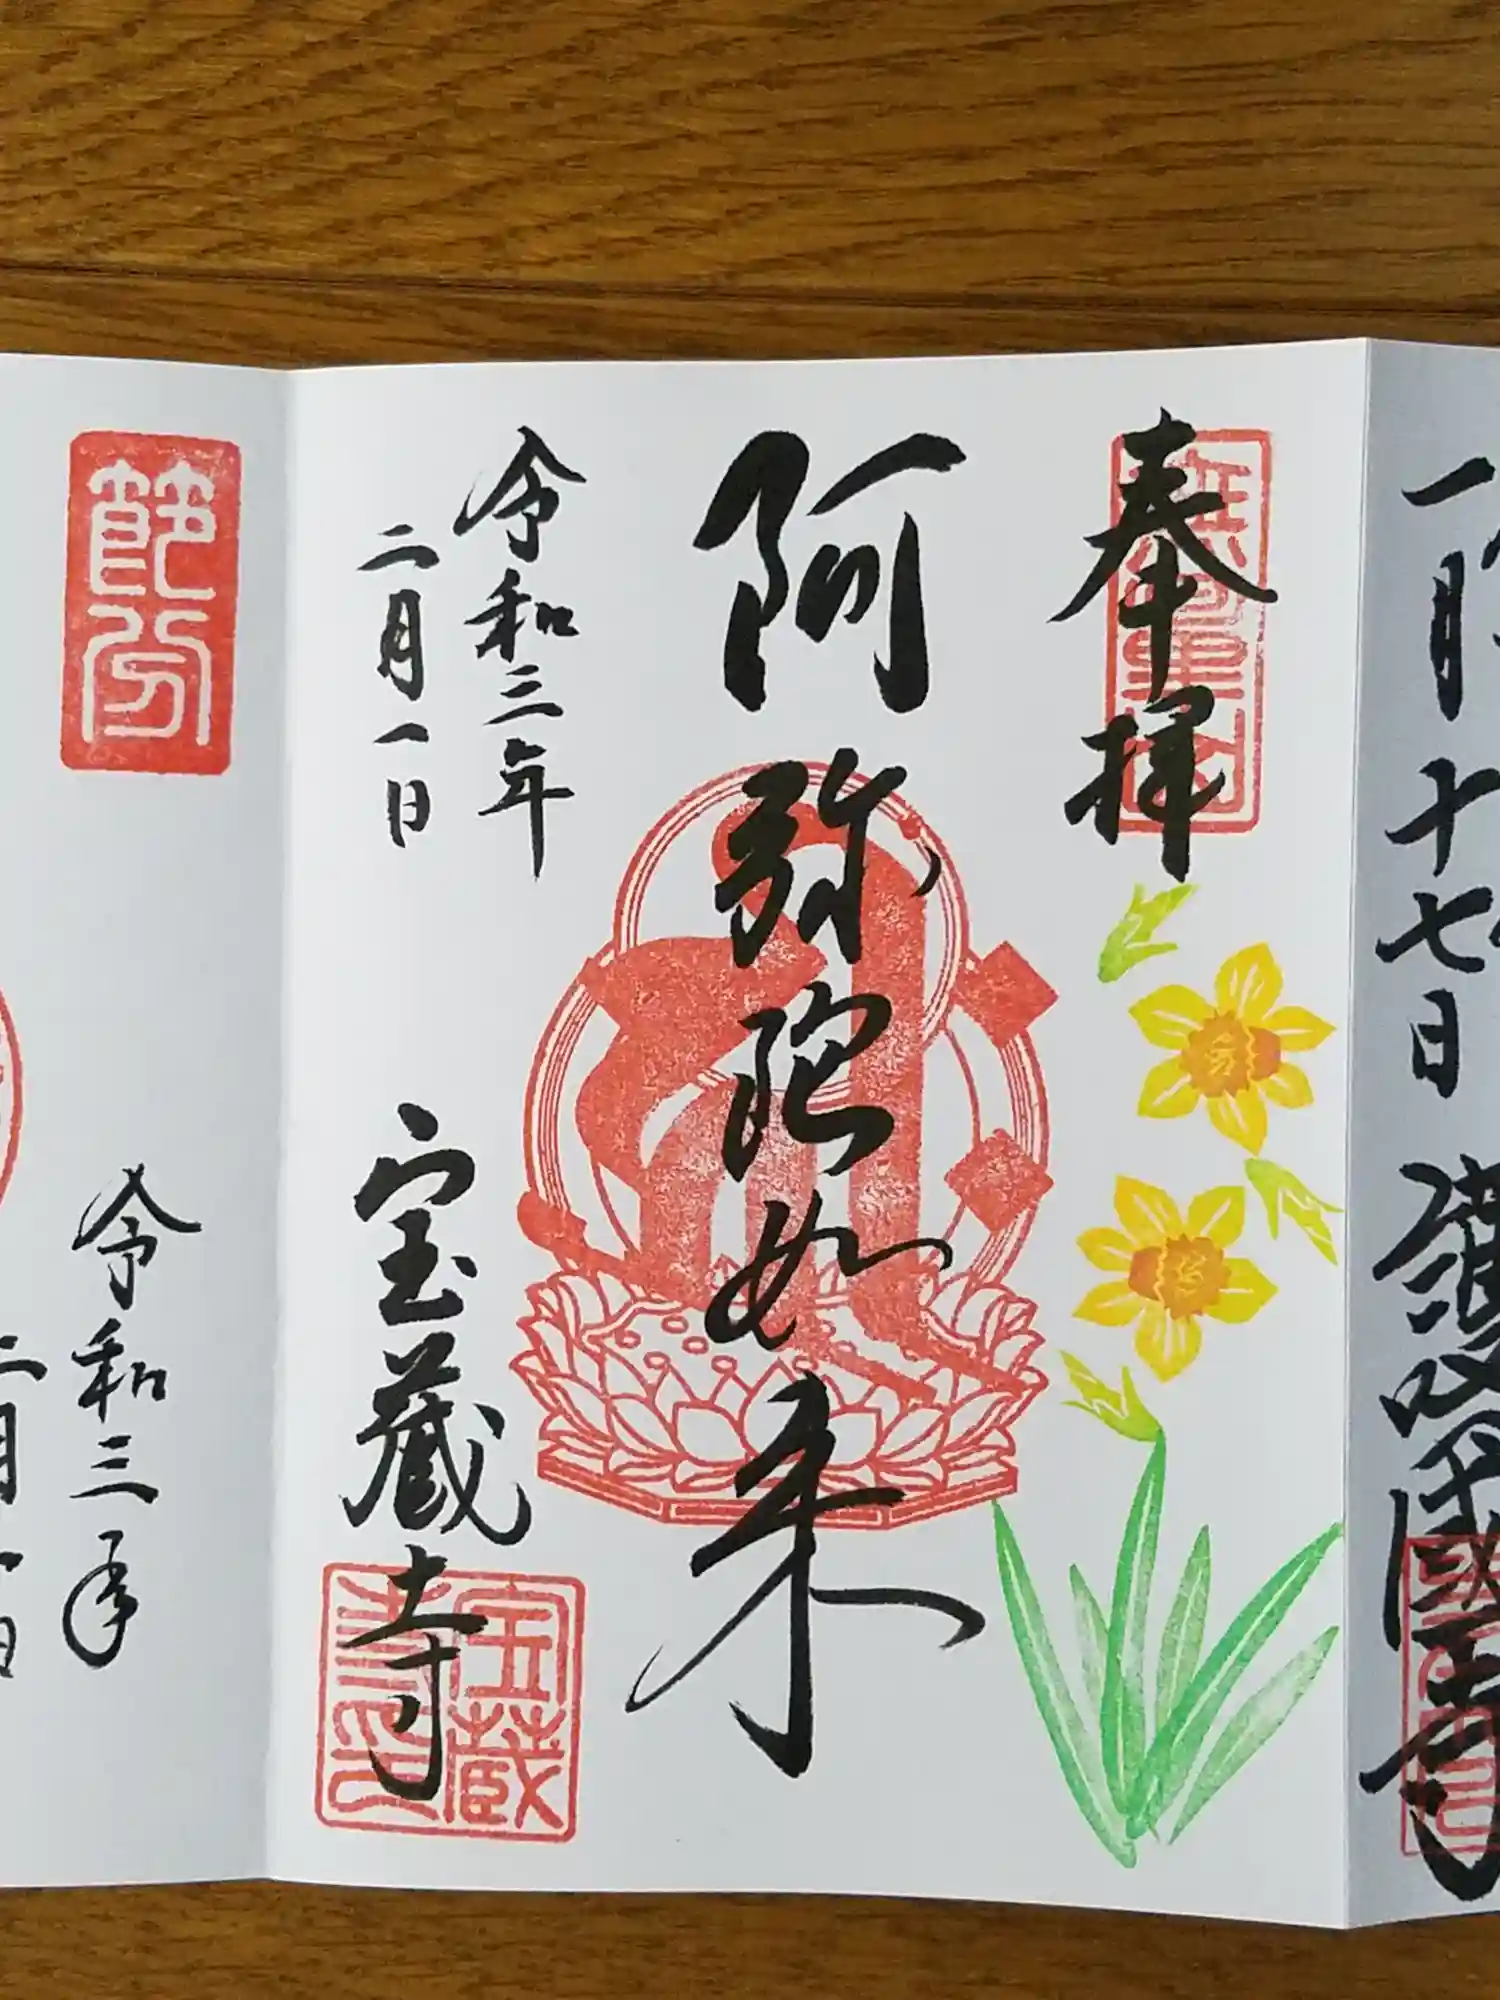 一月十七日
護國寺
奉拝
阿弥陀如来
令和三年
二月一日
宝蔵寺
宝蔵寺印
節分
令和三年